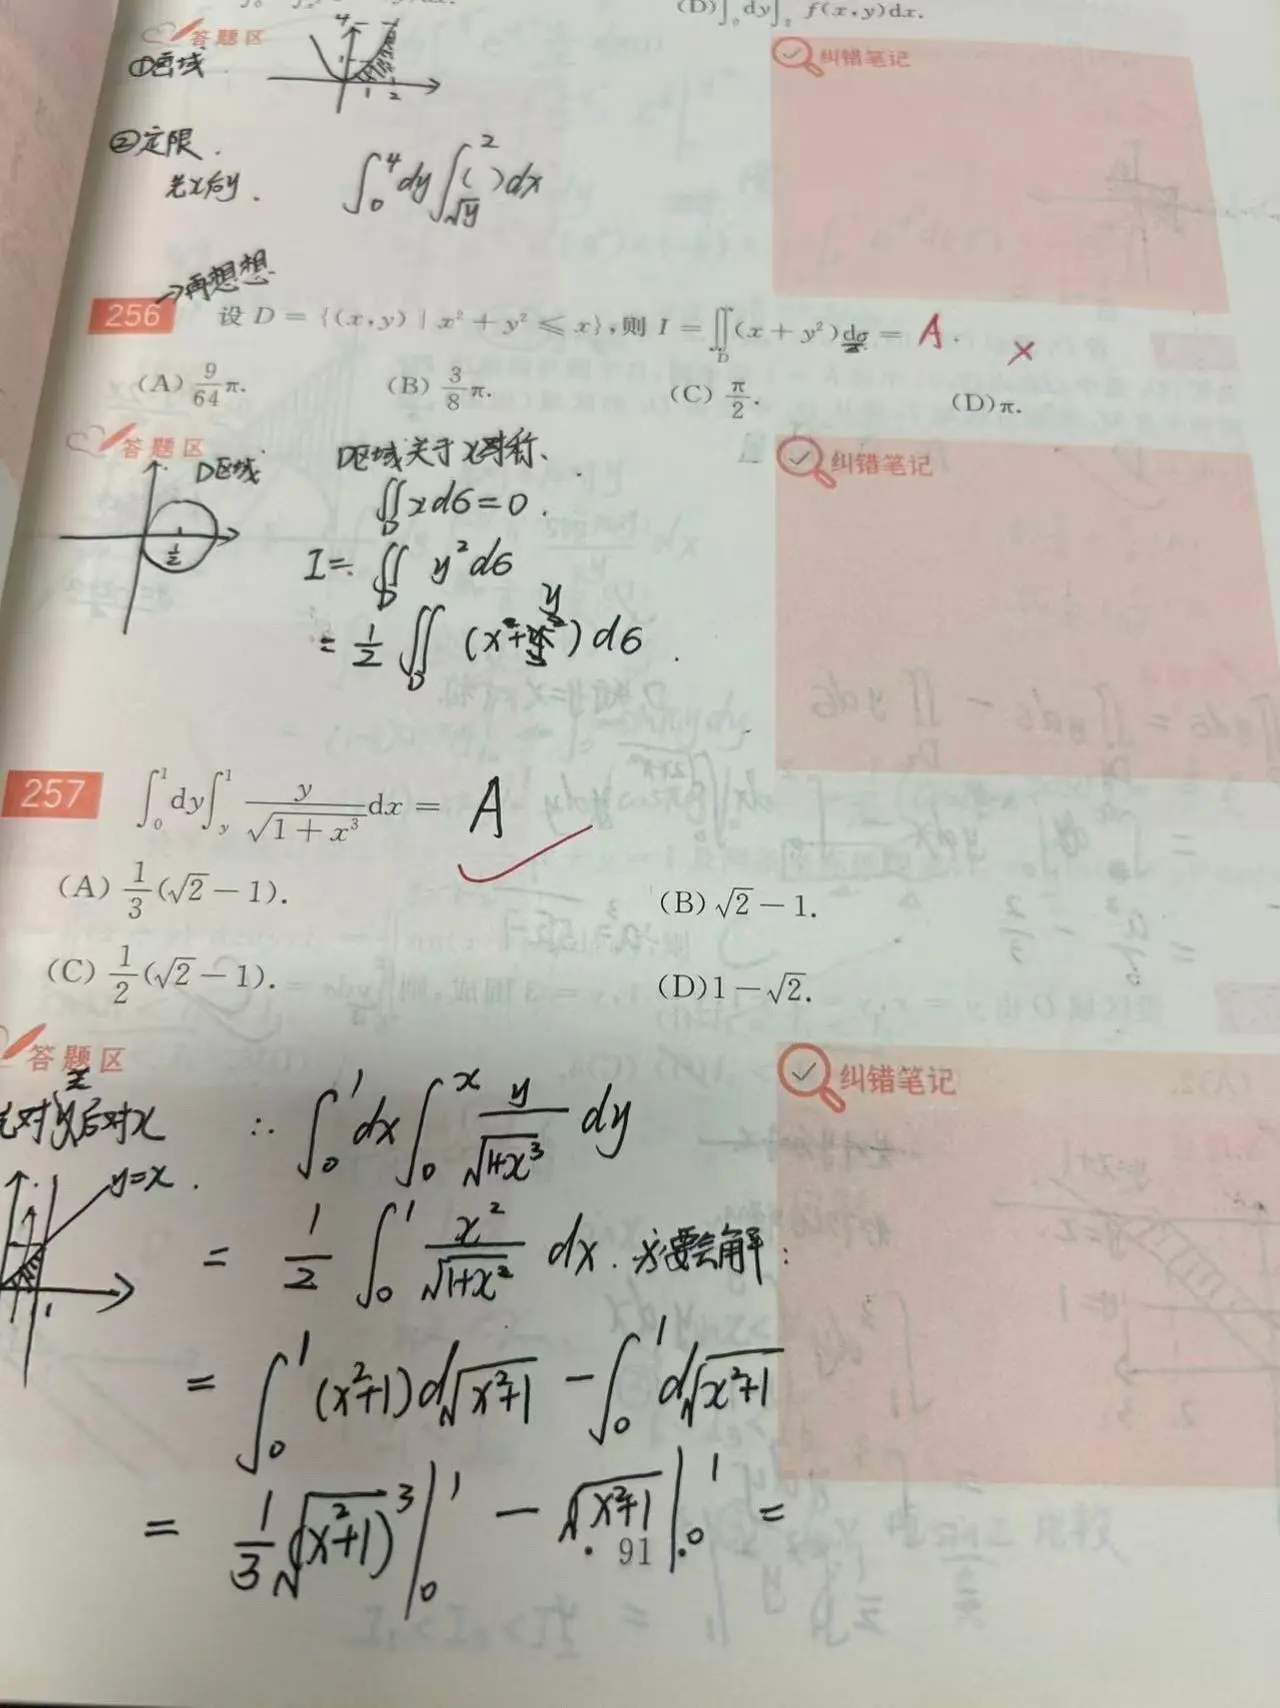 (D)∫₀ dy∫₂ f(x,y)dx.
答题区
纠错笔记
①画域
4
1 2
②定限.
先x后y. ∫₀⁴dy∫_{√y}²( )dx
→再想想
256 设D={(x,y)|x²+y²≤x},则I=∬_D(x+y²)dσ= A. ×
(A) 9/64 π. (B) 3/8 π. (C) π/2. (D)π.
答题区
纠错笔记
D区域 D区域关于x对称、
∬_D xdσ=0.
1/2
I=∬_D y²dσ
=1/2∬_D(x²+y²)dσ.
257 ∫₀¹dy∫_y¹ y/√(1+x³) dx= A
(A) 1/3(√2-1). (B)√2-1.
(C) 1/2(√2-1). (D)1-√2.
答题区
纠错笔记
先对y后对x ∴∫₀¹dx∫₀ˣ y/√(1+x³) dy
y=x.
1
=1/2∫₀¹ x²/√(1+x²) dx. 必要会解:
=∫₀¹(x²+1)d√(x²+1) -∫₀¹d√(x²+1)
=1/3√(x²+1)³|₀¹ - √(x²+1)|₀¹ =
• 91 •